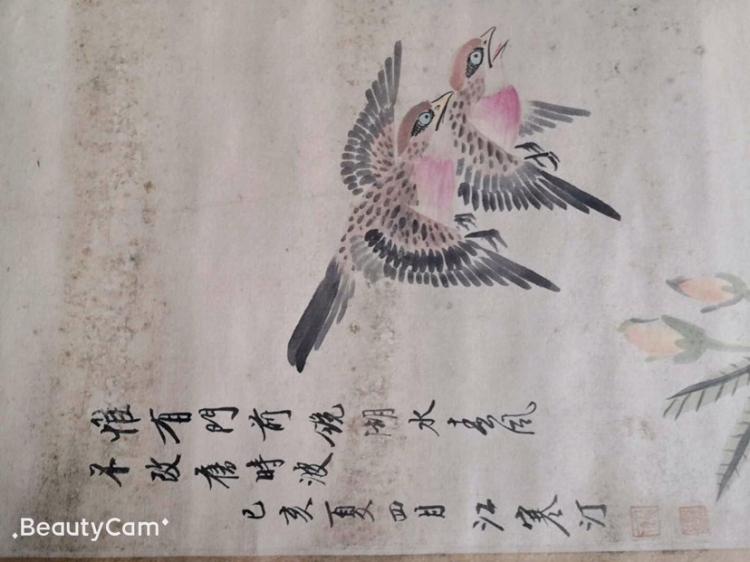 惟有門前鏡湖水春風
不改舊時波
己亥夏四月 江寒汀
.BeautyCam